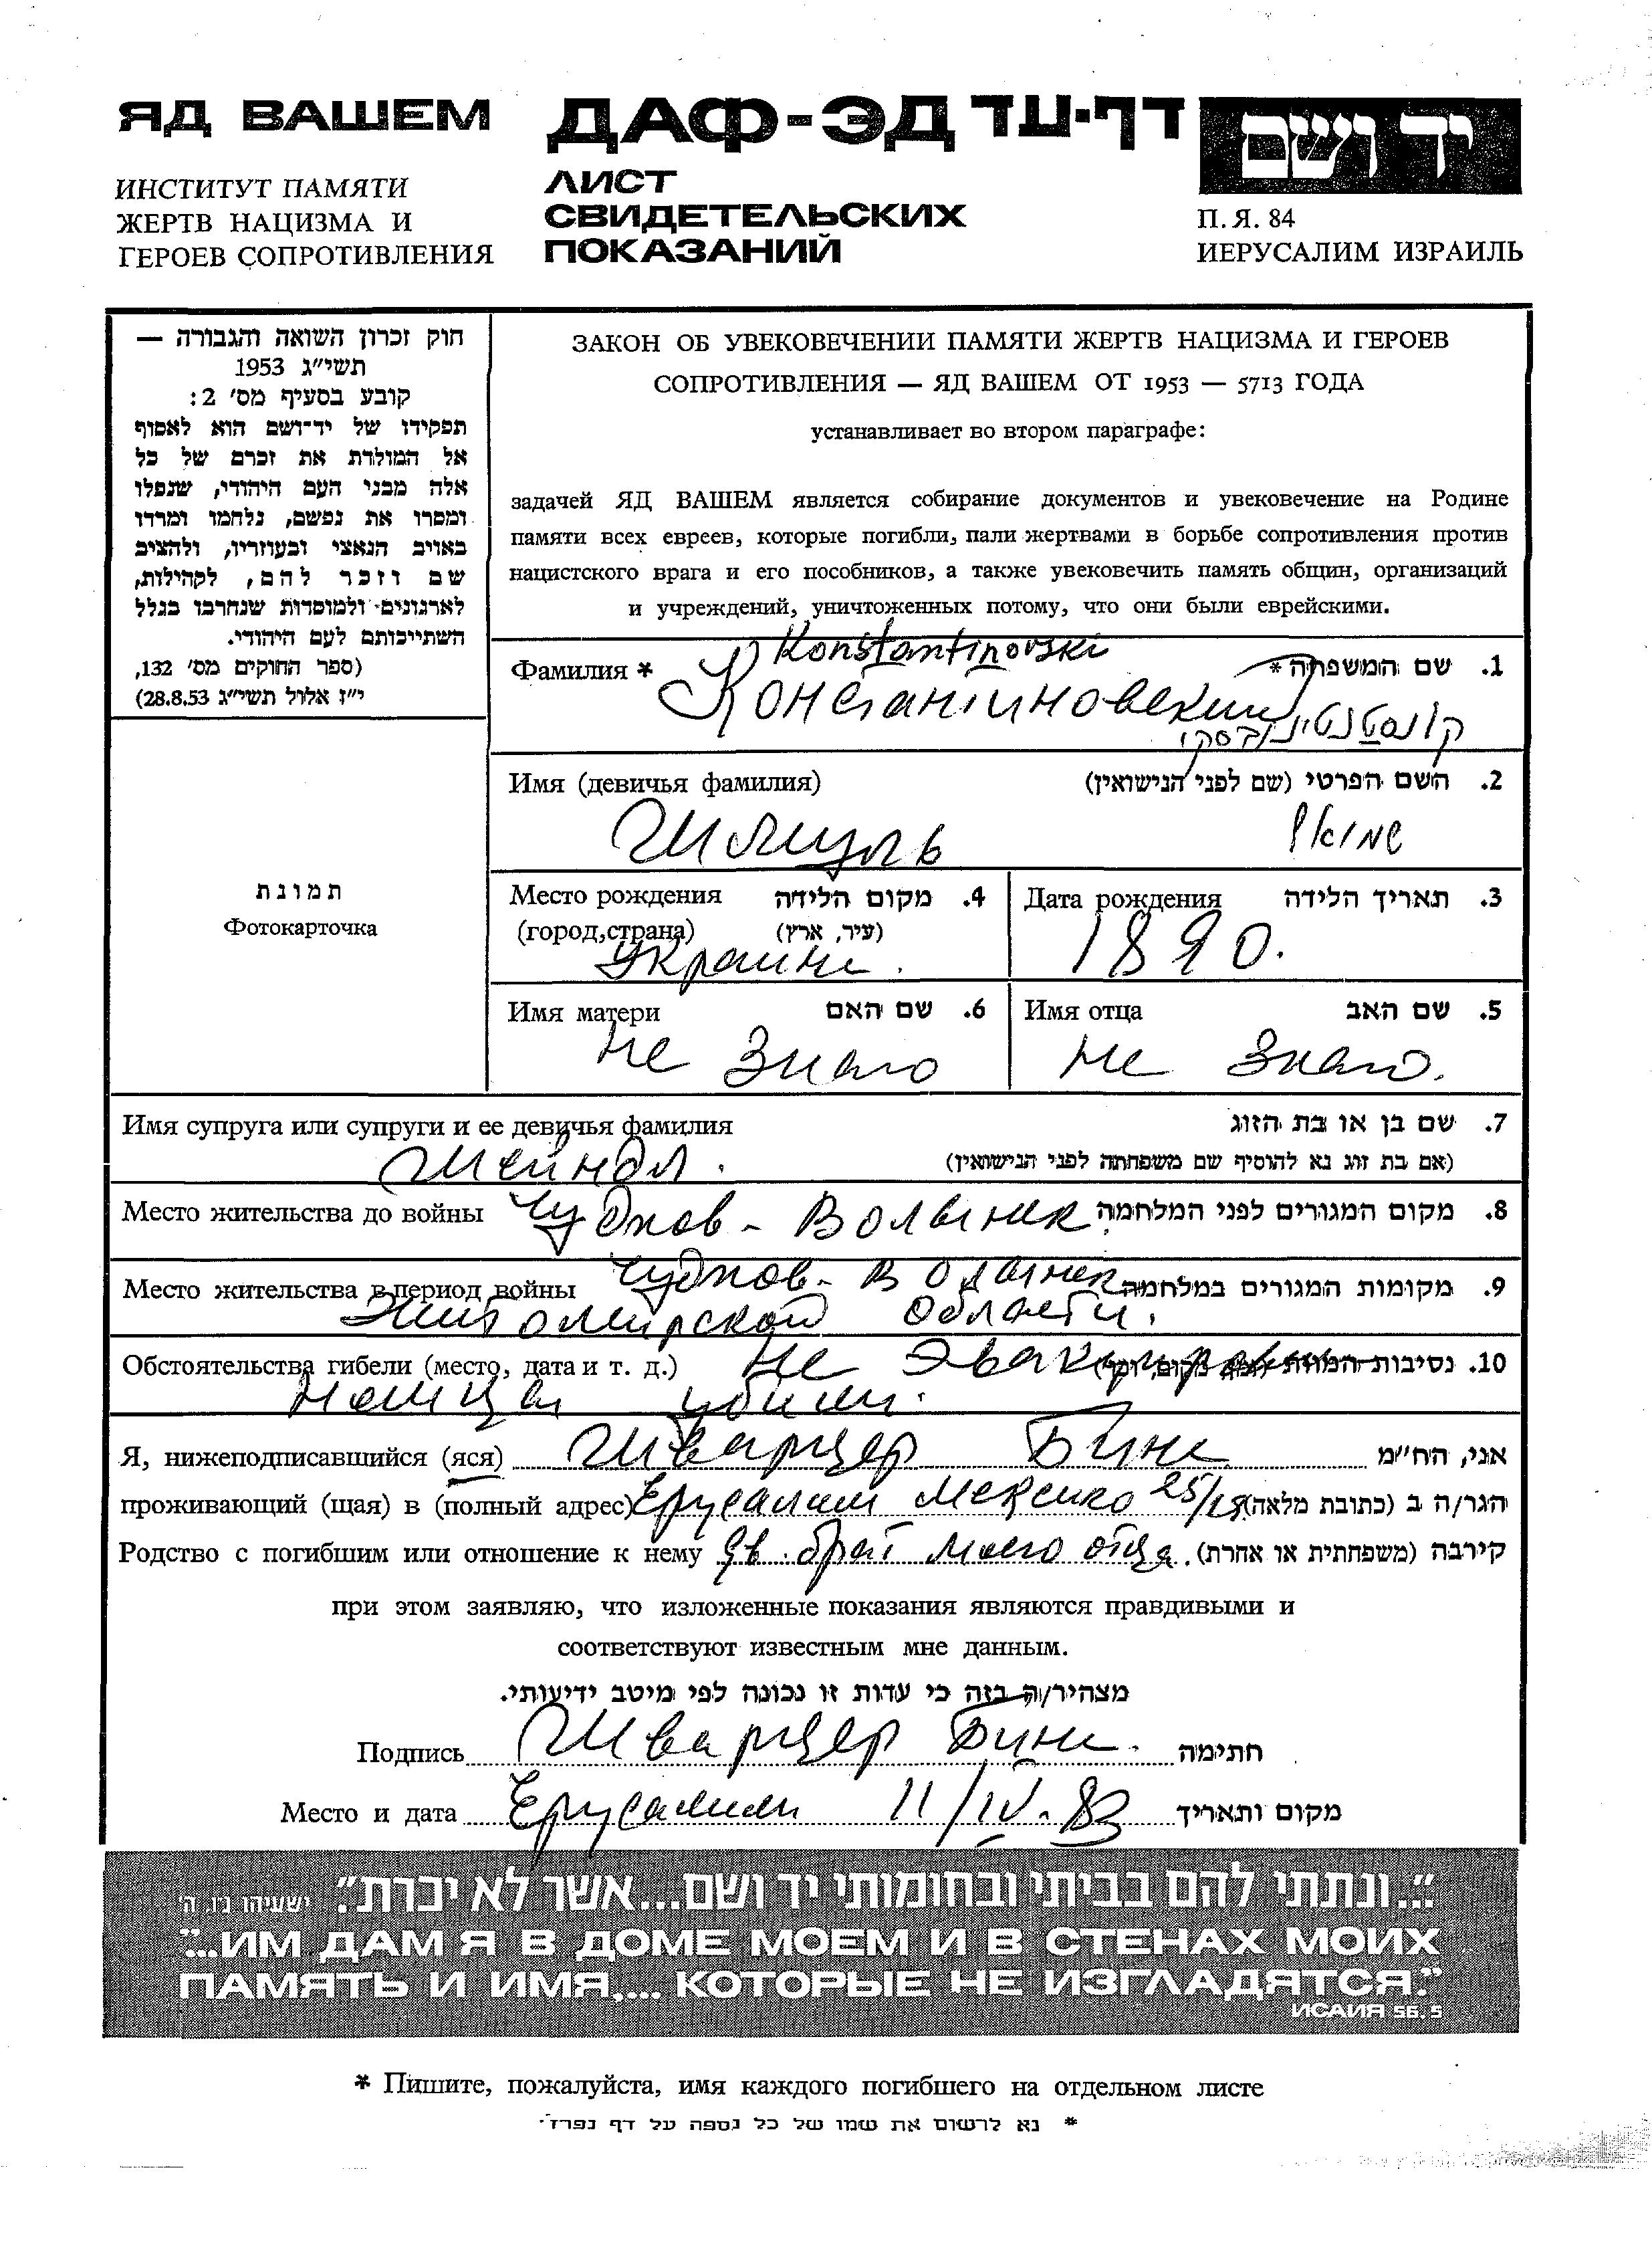 ЯД ВАШЕМ
ИНСТИТУТ ПАМЯТИ
ЖЕРТВ НАЦИЗМА И
ГЕРОЕВ СОПРОТИВЛЕНИЯ
ДАФ-ЭД דף-עד
ЛИСТ
СВИДЕТЕЛЬСКИХ
ПОКАЗАНИЙ
יד ושם
П. Я. 84
ИЕРУСАЛИМ ИЗРАИЛЬ
חוק זכרון השואה והגבורה —
תשי״ג 1953
קובע בסעיף מס׳ 2:
תפקידו של יד־ושם הוא לאסוף
אל המולדת את זכרם של כל
אלה מבני העם היהודי, שנפלו
ומסרו את נפשם, נלחמו ומרדו
באויב הנאצי ובעוזריו, ולהציב
שם וזכר להם, לקהילות,
לארגונים ולמוסדות שנחרבו בגלל
השתייכותם לעם היהודי.
(ספר החוקים מס׳ 132,
י״ז אלול תשי״ג 28.8.53)
ЗАКОН ОБ УВЕКОВЕЧЕНИИ ПАМЯТИ ЖЕРТВ НАЦИЗМА И ГЕРОЕВ
СОПРОТИВЛЕНИЯ — ЯД ВАШЕМ ОТ 1953 — 5713 ГОДА
устанавливает во втором параграфе:
задачей ЯД ВАШЕМ является собирание документов и увековечение на Родине
памяти всех евреев, которые погибли, пали жертвами в борьбе сопротивления против
нацистского врага и его пособников, а также увековечить память общин, организаций
и учреждений, уничтоженных потому, что они были еврейскими.
תמונת
Фотокарточка
Konstantinovski
Фамилия * Константиновский 1. שם המשפחה *
קונסטנטינובסקי
Имя (девичья фамилия) 2. השם הפרטי (שם לפני הנישואין)
Шмуль שמואל
Место рождения 4. מקום הלידה
(город, страна) (עיר, ארץ)
Украине.
Дата рождения 3. תאריך הלידה
1890.
Имя матери 6. שם האם
не знаю
Имя отца 5. שם האב
не знаю.
Имя супруга или супруги и ее девичья фамилия 7. שם בן או בת הזוג
Шейндл. (אם בת זוג נא להוסיף שם משפחתה לפני הנישואין)
Место жительства до войны Чуднов - Волынск 8. מקום המגורים לפני המלחמה
Место жительства в период войны Чуднов - Волынск 9. מקומות המגורים במלחמה
Житомирской области.
Обстоятельства гибели (место, дата и т. д.) не эвакуирован 10. נסיבות המוות
убили.
Я, нижеподписавшийся (яся) Шварцер Бина אני, הח״מ
проживающий (щая) в (полный адрес) Ерусалим Мексико 25/ הגר/ה ב (כתובת מלאה)
Родство с погибшим или отношение к нему дв. брат моего отца. קירבה (משפחתית או אחרת)
при этом заявляю, что изложенные показания являются правдивыми и
соответствуют известным мне данным.
מצהיר/ה בזה כי עדות זו נכונה לפי מיטב ידיעותי.
Подпись Шварцер Бина. חתימה
Место и дата Ерусалим 11/IV-83 מקום ותאריך
״...ונתתי להם בביתי ובחומותי יד ושם...אשר לא יכרת״. ישעיהו נ״ו, ה׳
"...ИМ ДАМ Я В ДОМЕ МОЕМ И В СТЕНАХ МОИХ
ПАМЯТЬ И ИМЯ,... КОТОРЫЕ НЕ ИЗГЛАДЯТСЯ."
ИСАИЯ 56, 5
* Пишите, пожалуйста, имя каждого погибшего на отдельном листе
* נא לרשום את שמו של כל נספה על דף נפרד.